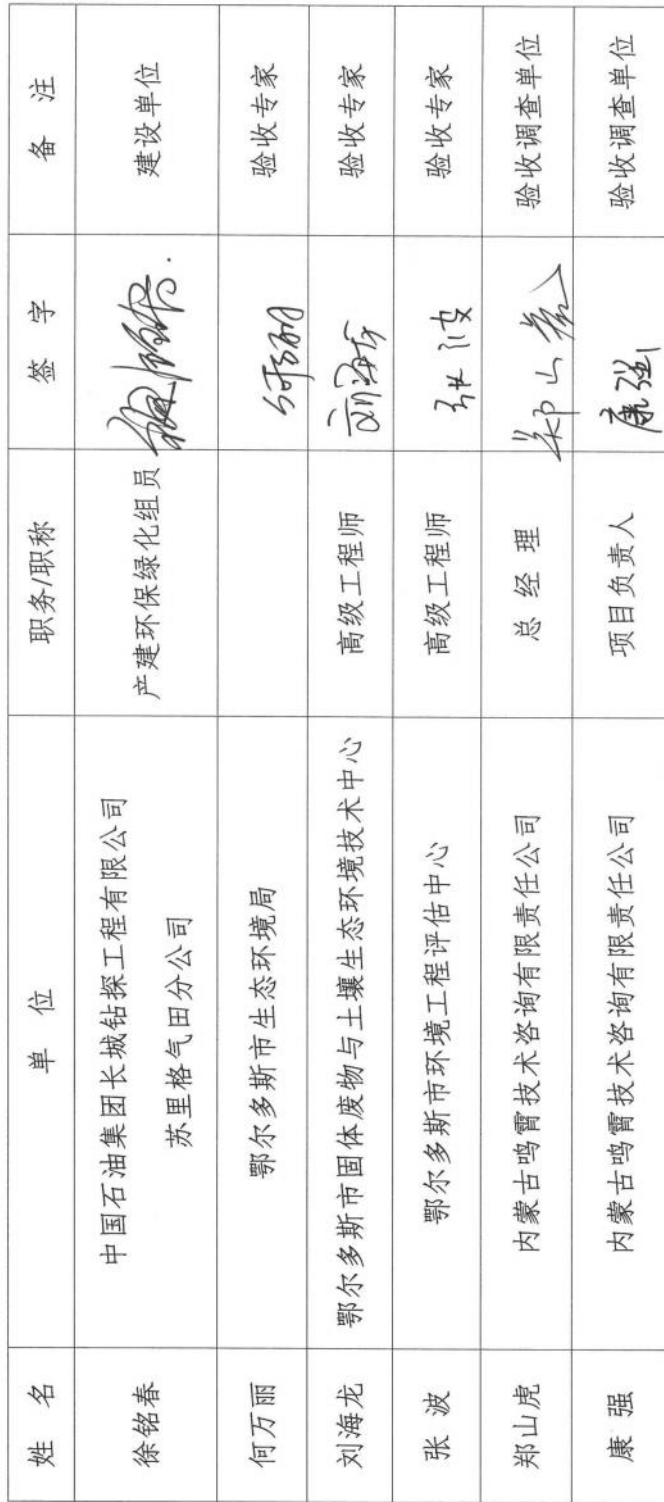 姓 名 单 位 职务/职称 签 字 备 注
徐铭春 中国石油集团长城钻探工程有限公司 产建环保绿化组员 建设单位
苏里格气田分公司
何万丽 鄂尔多斯市生态环境局 验收专家
刘海龙 鄂尔多斯市固体废物与土壤生态环境技术中心 高级工程师 刘海龙 验收专家
张 波 鄂尔多斯市环境工程评估中心 高级工程师 张波 验收专家
郑山虎 内蒙古鸣霄技术咨询有限责任公司 总 经 理 郑山虎 验收调查单位
康 强 内蒙古鸣霄技术咨询有限责任公司 项目负责人 康强 验收调查单位